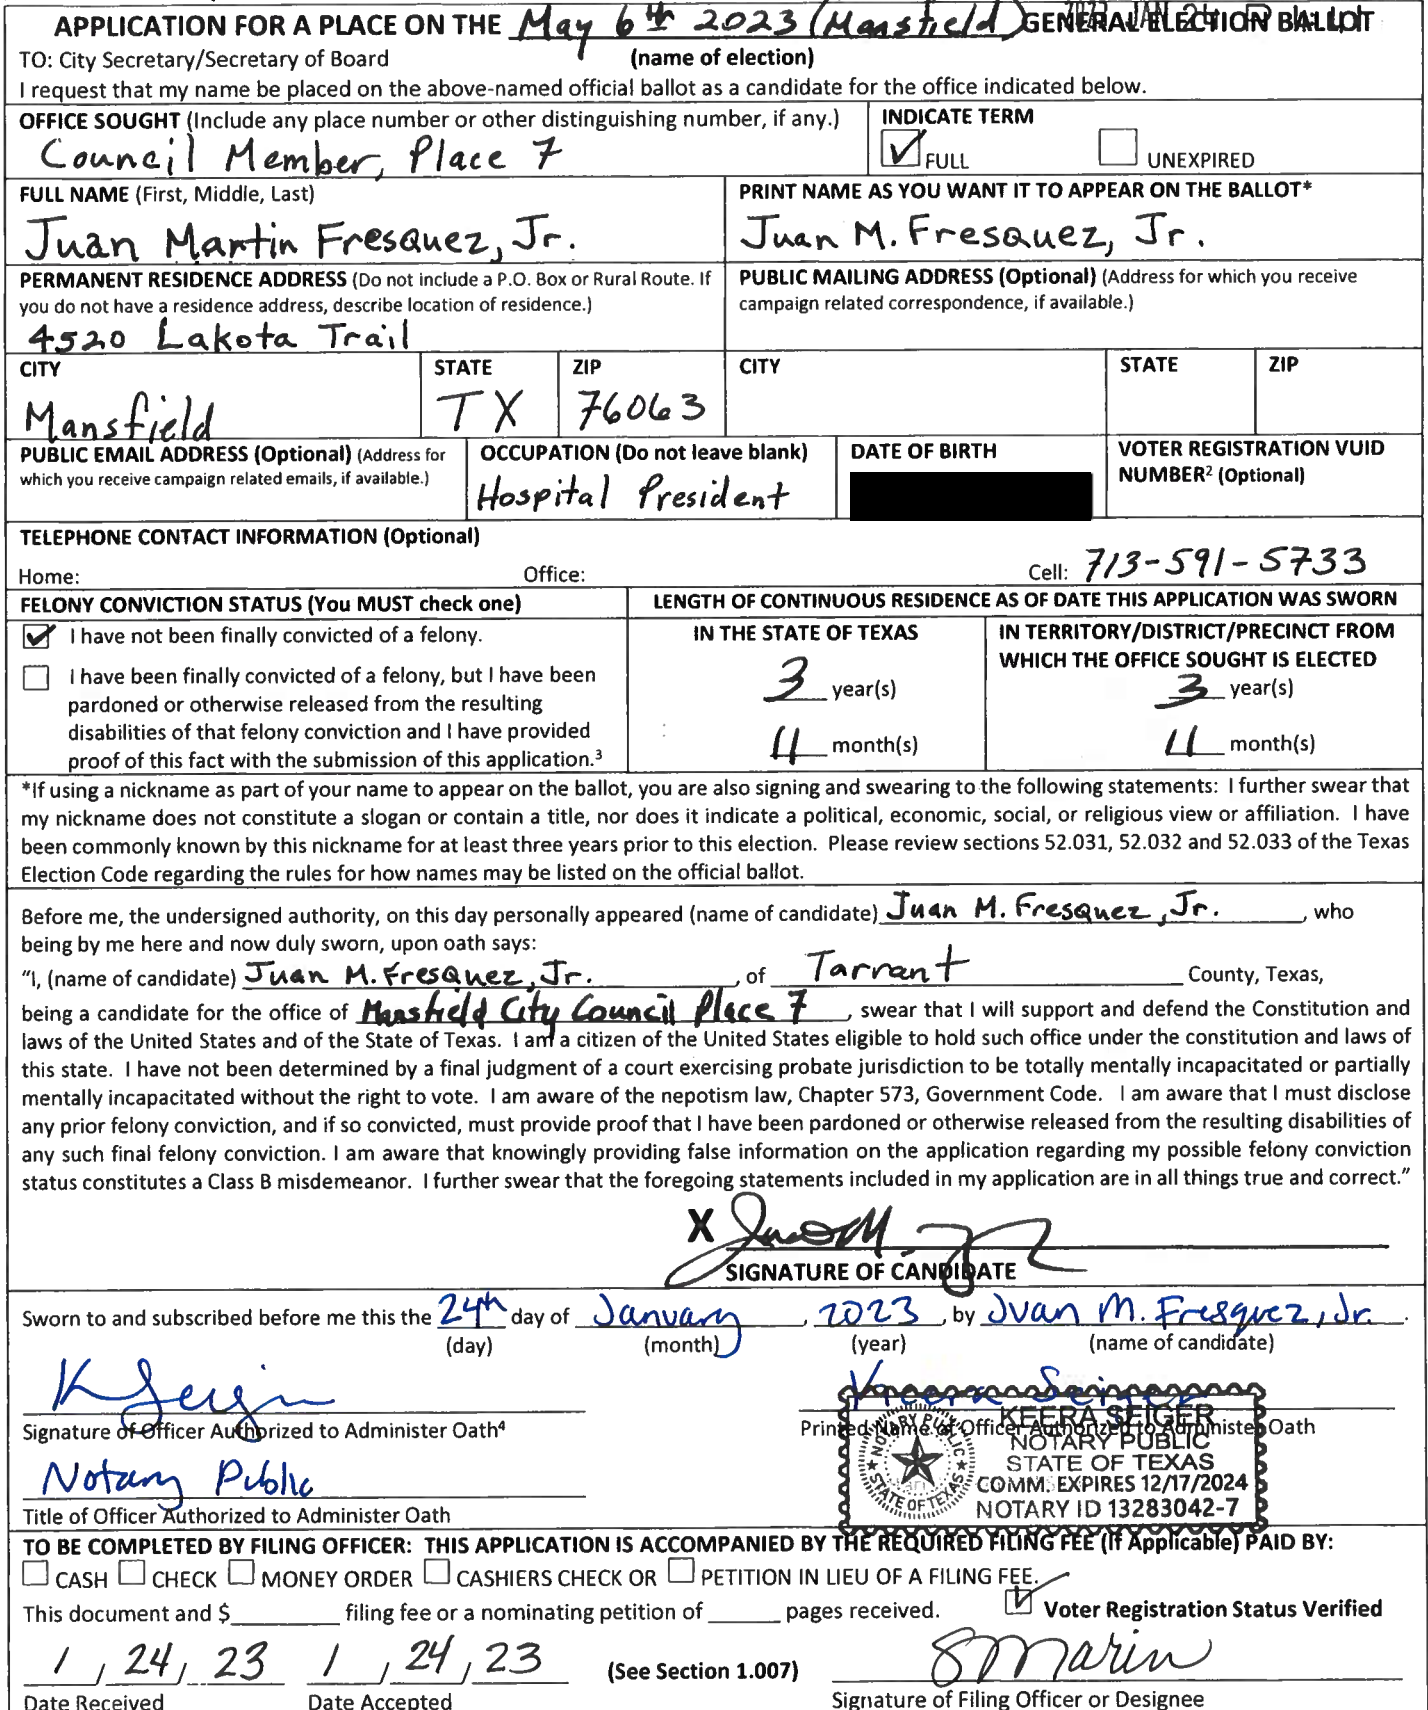 APPLICATION FOR A PLACE ON THE May 6th 2023 (Mansfield) GENERAL ELECTION BALLOT
TO: City Secretary/Secretary of Board (name of election)
I request that my name be placed on the above-named official ballot as a candidate for the office indicated below.
OFFICE SOUGHT (Include any place number or other distinguishing number, if any.) INDICATE TERM
Council Member, Place 7 ✓ FULL UNEXPIRED
FULL NAME (First, Middle, Last) PRINT NAME AS YOU WANT IT TO APPEAR ON THE BALLOT*
Juan Martin Fresquez, Jr. Juan M. Fresquez, Jr.
PERMANENT RESIDENCE ADDRESS (Do not include a P.O. Box or Rural Route. If PUBLIC MAILING ADDRESS (Optional) (Address for which you receive
you do not have a residence address, describe location of residence.) campaign related correspondence, if available.)
4520 Lakota Trail
CITY STATE ZIP CITY STATE ZIP
Mansfield TX 76063
PUBLIC EMAIL ADDRESS (Optional) (Address for OCCUPATION (Do not leave blank) DATE OF BIRTH VOTER REGISTRATION VUID
which you receive campaign related emails, if available.) Hospital President NUMBER² (Optional)
TELEPHONE CONTACT INFORMATION (Optional)
Home: Office: Cell: 713-591-5733
FELONY CONVICTION STATUS (You MUST check one) LENGTH OF CONTINUOUS RESIDENCE AS OF DATE THIS APPLICATION WAS SWORN
✓ I have not been finally convicted of a felony. IN THE STATE OF TEXAS IN TERRITORY/DISTRICT/PRECINCT FROM
WHICH THE OFFICE SOUGHT IS ELECTED
I have been finally convicted of a felony, but I have been 3 year(s) 3 year(s)
pardoned or otherwise released from the resulting
disabilities of that felony conviction and I have provided 11 month(s) 11 month(s)
proof of this fact with the submission of this application.³
*If using a nickname as part of your name to appear on the ballot, you are also signing and swearing to the following statements: I further swear that
my nickname does not constitute a slogan or contain a title, nor does it indicate a political, economic, social, or religious view or affiliation. I have
been commonly known by this nickname for at least three years prior to this election. Please review sections 52.031, 52.032 and 52.033 of the Texas
Election Code regarding the rules for how names may be listed on the official ballot.
Before me, the undersigned authority, on this day personally appeared (name of candidate) Juan M. Fresquez, Jr., who
being by me here and now duly sworn, upon oath says:
"I, (name of candidate) Juan M. Fresquez, Jr., of Tarrant County, Texas,
being a candidate for the office of Mansfield City Council Place 7, swear that I will support and defend the Constitution and
laws of the United States and of the State of Texas. I am a citizen of the United States eligible to hold such office under the constitution and laws of
this state. I have not been determined by a final judgment of a court exercising probate jurisdiction to be totally mentally incapacitated or partially
mentally incapacitated without the right to vote. I am aware of the nepotism law, Chapter 573, Government Code. I am aware that I must disclose
any prior felony conviction, and if so convicted, must provide proof that I have been pardoned or otherwise released from the resulting disabilities of
any such final felony conviction. I am aware that knowingly providing false information on the application regarding my possible felony conviction
status constitutes a Class B misdemeanor. I further swear that the foregoing statements included in my application are in all things true and correct."
X
SIGNATURE OF CANDIDATE
Sworn to and subscribed before me this the 24th day of January, 2023, by Juan M. Fresquez, Jr.
(day) (month) (year) (name of candidate)
K Seiger Keera Seiger
Signature of Officer Authorized to Administer Oath⁴ Printed Name of Officer Authorized to Administer Oath
KEERA SEIGER
NOTARY PUBLIC
STATE OF TEXAS
COMM. EXPIRES 12/17/2024
NOTARY ID 13283042-7
NOTARY PUBLIC STATE OF TEXAS
Notary Public
Title of Officer Authorized to Administer Oath
TO BE COMPLETED BY FILING OFFICER: THIS APPLICATION IS ACCOMPANIED BY THE REQUIRED FILING FEE (If Applicable) PAID BY:
CASH CHECK MONEY ORDER CASHIERS CHECK OR PETITION IN LIEU OF A FILING FEE.
This document and $ filing fee or a nominating petition of pages received. ✓ Voter Registration Status Verified
1, 24, 23 1, 24, 23 (See Section 1.007) SMarin
Date Received Date Accepted Signature of Filing Officer or Designee